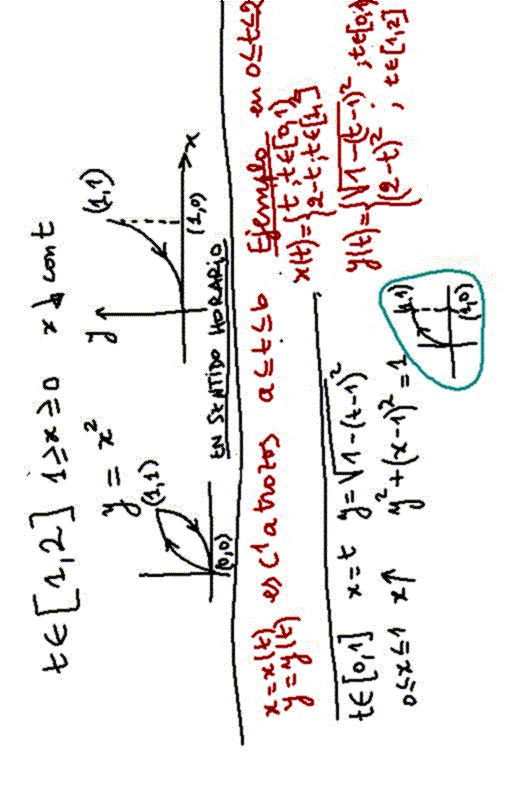 t∈[1,2] 1≥x≥0 x↓ con t
y = x²
(1,1)
(0,0)
y
(1,1)
x
(1,0)
EN SENTIDO HORARIO
x=x(t)
y=y(t)
es C¹ a trozos a≤t≤b Ejemplo en 0≤t≤2
x(t)={ t, t∈[0,1]
2-t, t∈[1,2]
y(t)={ √1-(t-1)², t∈[0,1]
(2-t)², t∈[1,2]
t∈[0,1] x=t y=√1-(t-1)²
0≤x≤1 x↑ y²+(x-1)²=1
(1,1)
(1,0)